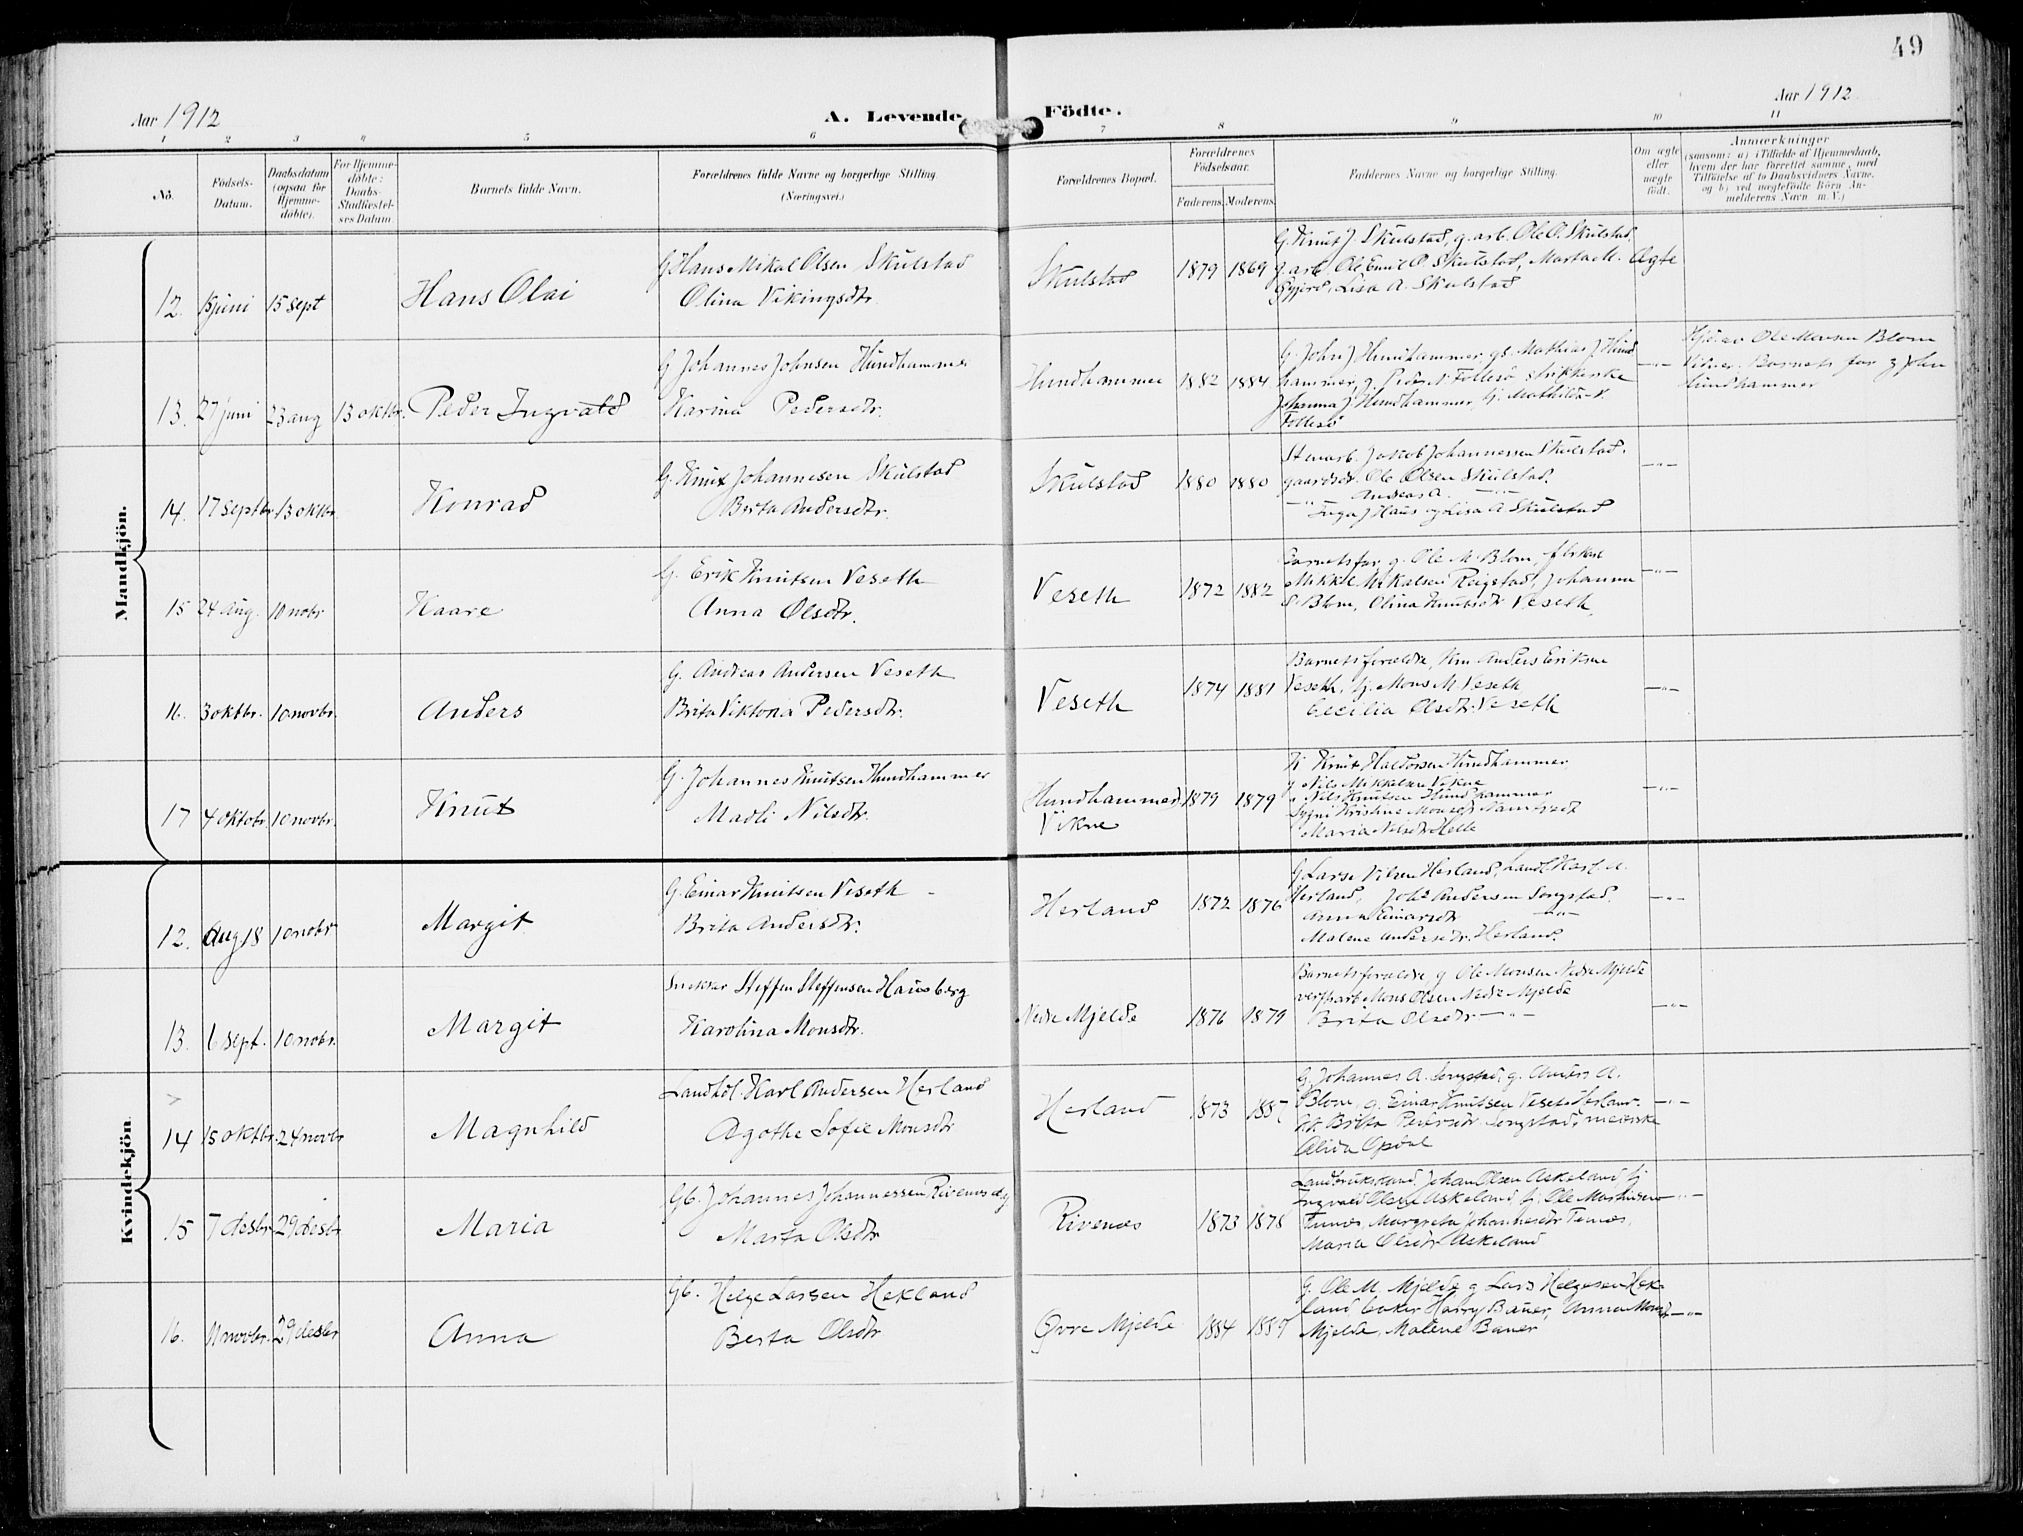 49
Aar 1912
A. Levende Födte.
Aar 1912.
1 2 3 4 5 6 7 8 9 10 11
No.
Födsels-
Datum.
Daabsdatum
(ogsaa for
Hjemme-
döbte).
For Hjemme-
döbte:
Daabs-
Stadfæstel-
ses Datum.
Barnets fulde Navn.
Forældrenes fulde Navne og borgerlige Stilling.
(Næringsvei.)
Forældrenes Bopæl.
Forældrenes
Födselsaar.
Faderens. Moderens.
Faddernes Navne og borgerlige Stilling.
Om ægte
eller
uægte
født.
Anmærkninger
(saasom: a) i Tilfælde af Hjemmedaab,
hvem der har forrettet samme, med
Tilföielse af to Daabsvidners Navne,
og b) ved uægtefödte Börn An-
melderens Navn m. V.)
Mandkjön.
12. juni 15 sept
Hans Olai
G Hans Mikal Olsen Skulstad
Olina Vikingsdtr.
Skulstad
1879 1869
G. Knut J. Skulstad, g. arb. Ole O. Skulstad,
g. arb. Ole Emil O. Skulstad, Marta M.
Lisa A. Skulstad
Ægte
13. 27 juni 23 aug 13 oktbr.
Peder Ingvald
G Johannes Johnsen Hundhammer
Karina Pedersdtr.
Hundhammer
1882 1884
G. John J Hundhammer, gs. Mathias J Hund
hammer, g. Peder N. Follesö
Johanna J Hundhammer, G. Mathilde N.
Follesö
-"-
Hjd. av Ole Monsen Blom
Vidner: Barnets far g John
Hundhammer
14. 17 septbr. 13 oktbr.
Konrad
G. Knut Johannesen Skulstad
Berta Andersdtr.
Skulstad
1880 1880
Stenarb. Jakob Johannessen Skulstad.
gaardsdr. Ole Olsen Skulstad.
-"- Andreas A. -"-
Inga J Haus og Lisa A Skulstad
-"-
15 24 aug. 10 nobr
Kaare
G. Erik Knutsen Veseth
Anna Olsdtr.
Veseth
1872 1882
Barnets far, g. Ole M. Blom,
Mikkel Mikalsen Reigstad, Johanna
S. Blom, Olina Knutsdtr Veseth,
-"-
16. 3 oktbr. 10 novbr.
Anders
G. Andreas Andersen Veseth
Brita Viktoria Pedersdtr.
Veseth
1874 1881
Barnets foreldre, Anders Eriksen
Veseth, Mons M. Veseth
Cecilia Olsdtr. Veseth
-"-
17 4 oktobr. 10 novbr.
Knut
G. Johannes Knutsen Hundhammer
Madli Nilsdtr.
Hundhammer
Vikne
1879 1879
K Knut Haldorsen Hundhammer,
g Nils Mikkelsen Vikne
Nils Knutsen Hundhammer
Kristine Monsdtr
Maria Nilsdtr Helle
-"-
Kvindekjön
12. Aug 18 10 nobr
Margit
G. Einar Knutsen Veseth
Brita Andersdtr.
Herland
1872 1876
G Lars Nilsen Herland, Landh. Karl A.
Herland, Johs Andersen Songstad.
Anna Einarsdtr -"-
Malene Andersdtr. Herland.
-"-
13. 6 sept. 10 nobr.
Margit
Snekker Steffen Steffensen Hausberg
Karolina Monsdtr.
Nedre Mjelde
1876 1879
Barnets foreldre g Ole Monsen Nedre Mjelde
Mons Olsen Nedre Mjelde
Brita Olsdtr -"-
-"-
14 15 oktbr. 24 novbr
Magnhild
Landhdl. Karl Andersen Herland
Agothe Sofie Monsdtr
Herland
1873 1887
G. Johannes A. Songstad, g. Anders A.
Blom, g. Einar Knutsen Veseth Herland,
Brita Pedersdr Songstad, meierske
Alida Opdal
-"-
15 7 desbr 29 desbr
Maria
Gb. Johannes Johannessen Rivenæs
Marta Olsdtr
Rivenæs
1873 1878
Johan Olsen Askeland
Ingvald Olsen Askeland, Ole Mathisen
Tunæs, Margreta Johannesdtr Tunæs,
Maria Olsdtr Askeland
-"-
16. 11 novbr. 29 desbr
Anna
Gb. Helge Larsen Hekland
Berta Olsdtr
Øvre Mjelde
1884 1889
G. Ole M. Mjelde g Lars Helgesen Hek-
land baker Harry Bauer, Anna Monsd
Mjelde, Malene Bauer
-"-